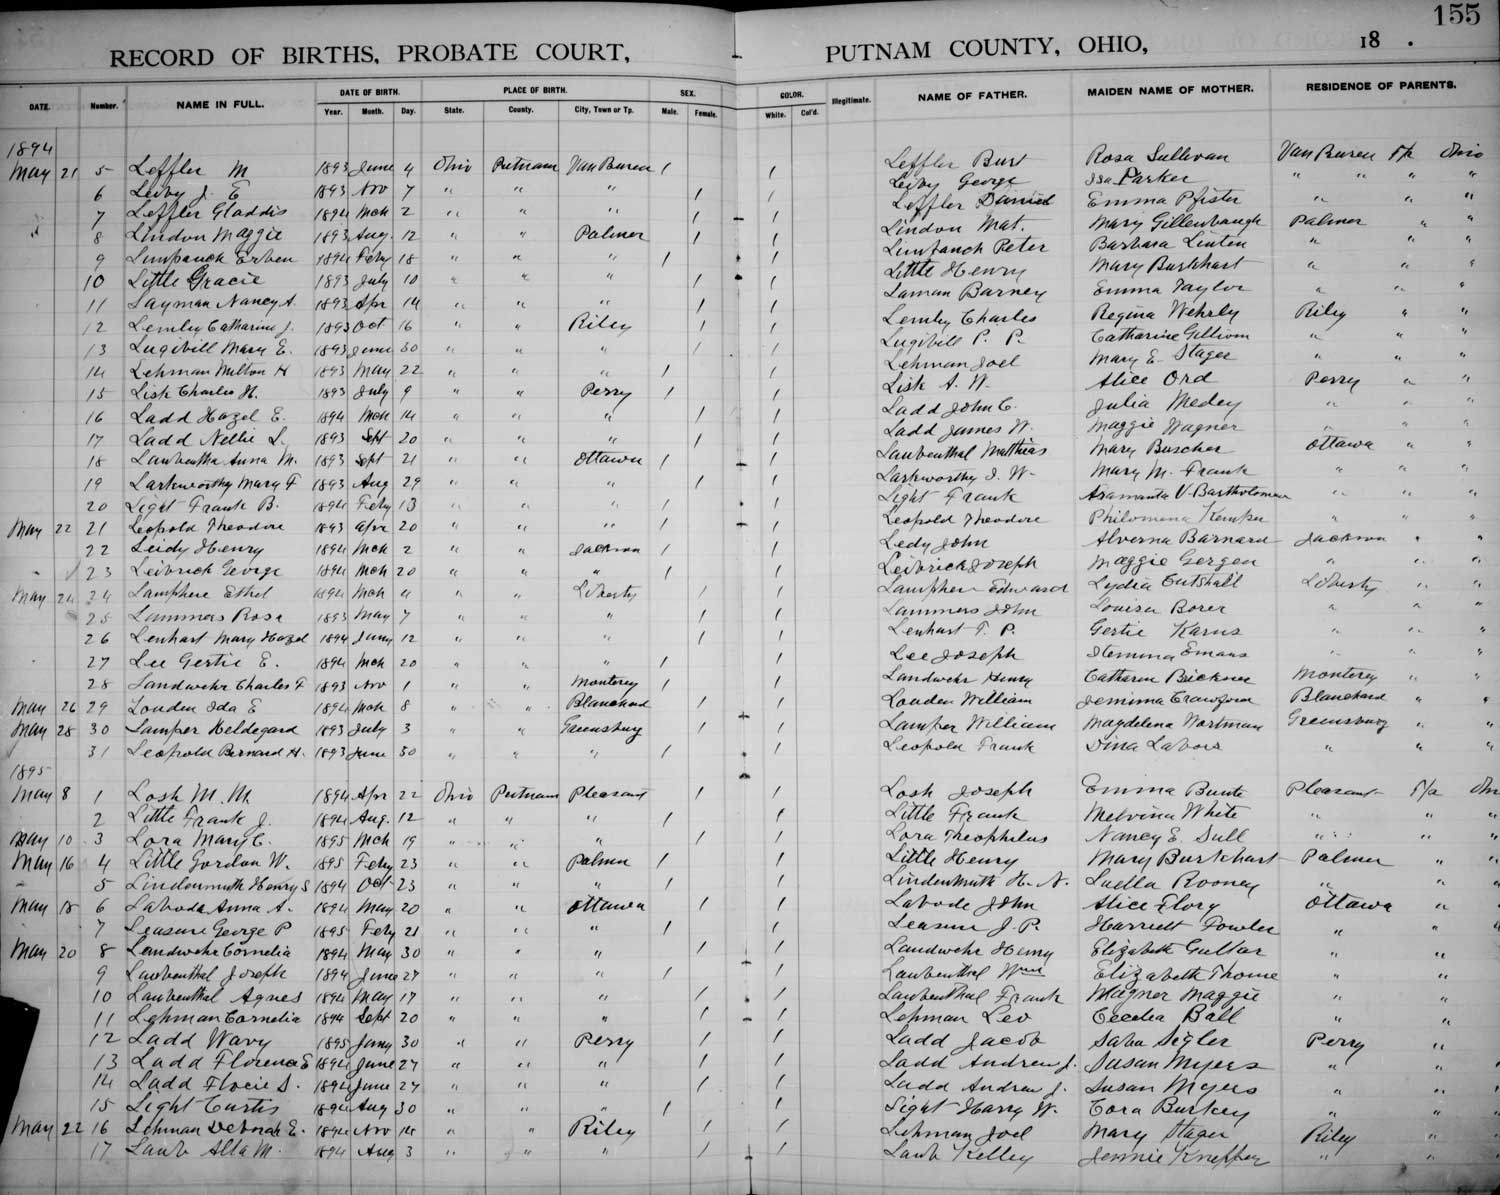 155
RECORD OF BIRTHS, PROBATE COURT, PUTNAM COUNTY, OHIO, 18 .
DATE. Number. NAME IN FULL. DATE OF BIRTH. Year. Month. Day. PLACE OF BIRTH. State. County. City, Town or Tp. SEX. Male. Female. COLOR. White. Col'd. Illegitimate. NAME OF FATHER. MAIDEN NAME OF MOTHER. RESIDENCE OF PARENTS.
1894
May 21 5 Leffler M 1893 June 4 Ohio Putnam Van Buren 1 1 Leffler Burt Rosa Sullivan Van Buren T/p Ohio
6 Leivy J. E 1893 Nov 7 " " " 1 1 Leivy George Isa Parker " " " "
7 Leffler Gladdis 1894 Mch 2 " " " 1 1 Leffler Daniel Emma Pfister " " "
8 Lindon Maggie 1893 Aug. 12 " " Palmer 1 1 Lindon Mat. Mary Gillenbaugh Palmer " "
9 Limpanch Erben 1894 Feby 18 " " " 1 1 Limpanch Peter Barbara Linten " " "
10 Little Gracie 1893 July 10 " " " 1 1 Little Henry Mary Burkhart " " "
11 Layman Nancy A. 1893 Apr 14 " " " 1 1 Laman Barney Emma Taylor " " "
12 Lemley Catharine J. 1893 Oct 16 " " Riley 1 1 Lemley Charles Regina Wehrly Riley " "
13 Lugibill Mary E. 1893 June 30 " " " 1 1 Lugibill P. P. Catharine Gilliom " " "
14 Lehman Milton H 1893 May 22 " " " 1 1 Lehman Joel Mary E Stager " " "
15 Lisk Charles H. 1893 July 9 " " Perry 1 1 Lisk A. W. Alice Ord Perry " "
16 Ladd Hazel E. 1894 Mch 14 " " " 1 1 Ladd John C. Julia Medey " " "
17 Ladd Nellie L. 1893 Sept 20 " " " 1 1 Ladd James W. Maggie Wagner " " "
18 Laubentha Anna M. 1893 Sept 21 " " Ottawa 1 1 Laubenthal Matthias Mary Buscher Ottawa " "
19 Larkworthy Mary F 1893 Aug 29 " " " 1 1 Larkworthy J. W. Mary M. Frank " " "
20 Light Frank B. 1894 Feby 13 " " " 1 1 Light Frank Aramanta V. Bartholomew " " "
May 22 21 Leopold Theodore 1893 Apr 20 " " " 1 1 Leopold Theodore Philomena Kemper " " "
22 Leidy Henry 1894 Mch 2 " " Jackson 1 1 Ledy John Alverna Barnard Jackson " "
23 Leibrick George 1894 Mch 20 " " " 1 1 Leibrick Joseph Maggie Gergen " " "
May 24 24 Lamphere Ethel 1894 Mch 4 " " Liberty 1 1 Lamphere Edward Lydia Cutshall Liberty " "
25 Lammers Rosa 1893 May 7 " " " 1 1 Lammers John Louisa Borer " " "
26 Lenhart Mary Hazel 1894 Jany 12 " " " 1 1 Lenhart T. P. Gertie Karns " " "
27 Lee Gertie E. 1894 Mch 20 " " " 1 1 Lee Joseph Emans " " "
28 Landwehr Charles F 1893 Nov 1 " " Monterey 1 1 Landwehr Henry Catharen Brickner Monterey " "
May 26 29 Louden Ida E 1894 Mch 8 " " Blanchard 1 1 Louden William Jemima Crawford Blanchard " "
May 28 30 Lamper Heldegard 1893 July 3 " " Greensburg 1 1 Lamper William Magdelena Wortman Greensburg " "
31 Leopold Bernard H. 1893 June 30 " " " 1 1 Leopold Frank Dina Labors " " "
1895
May 8 1 Losh M. M. 1894 Apr 22 Ohio Putnam Pleasant 1 1 Losh Joseph Emma Bunte Pleasant T/p Ohio
2 Little Frank J. 1894 Aug. 12 " " " 1 1 Little Frank Melvina White " " "
May 10 3 Lora Mary C. 1895 Mch 19 " " " 1 1 Lora Theophilus Nancy E Sull " " "
May 16 4 Little Gordon W. 1895 Feby 23 " " Palmer 1 1 Little Henry Mary Burkhart Palmer " "
5 Lindenmuth Henry S 1894 Oct 23 " " " 1 1 Lindenmuth H. N. Luella Rooney " " "
May 18 6 Labode Anna A. 1894 May 20 " " Ottawa 1 1 Labode John Alice Flory Ottawa " "
7 Leasure George P 1895 Feby 21 " " " 1 1 Leasure J. P. Harriett Fowler " " "
May 20 8 Landwehr Cornelia 1894 May 30 " " " 1 1 Landwehr Henry Elizabeth Gulker " " "
9 Laubenthal Joseph 1894 June 27 " " " 1 1 Laubenthal Wm Elizabeth Thome " " "
10 Laubenthal Agnes 1894 May 17 " " " 1 1 Laubenthal Frank Wagner Maggie " "
11 Lehman Cornelia 1894 Sept 20 " " " 1 1 Lehman Leo Cecelia Ball " "
12 Ladd Wavy 1895 Jany 30 " " Perry 1 1 Ladd Jacob Saba Sigler Perry "
13 Ladd Florence E 1894 June 27 " " " 1 1 Ladd Andrew J. Susan Myers " "
14 Ladd Flocie S. 1894 June 27 " " " 1 1 Ladd Andrew J. Susan Myers " "
15 Light Curtis 1894 Aug 30 " " " 1 1 Light Harry W. Cora Burkey " "
May 22 16 Lehman Deborah E. 1894 Nov 14 " " Riley 1 1 Lehman Joel Mary Stager Riley "
17 Laub Alta M. 1894 Aug 3 " " " 1 1 Laub Kelley Jennie Knepper " "